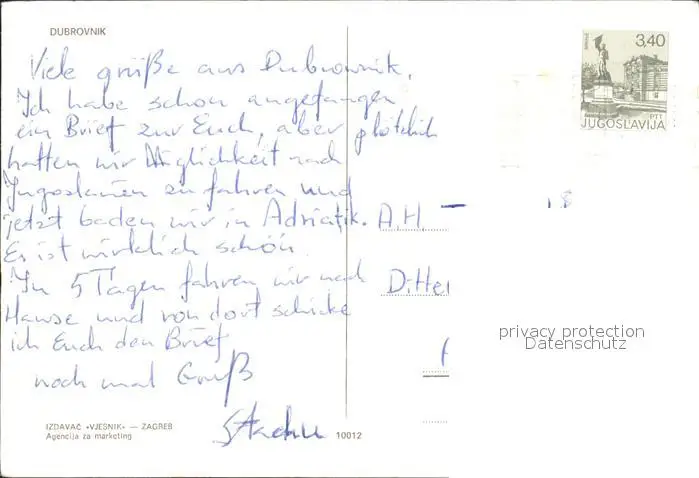 DUBROVNIK
Viele grüße aus Dubrownik.
Ich habe schon angefangen
ein Brief zur Euch, aber plötzlich
hatten wir Möglichkeit nach
Jugoslawien zu fahren und
jetzt baden wir in Adriatik.
Es ist wirklich schön.
In 5 Tagen fahren wir nach
Hause und von dort schicke
ich Euch den Brief
noch mal Gruß
Stachu
IZDAVAČ «VJESNIK» — ZAGREB
Agencija za marketing
10012
3,40
PTT
JUGOSLAVIJA
A.H.
privacy protection
Datenschutz